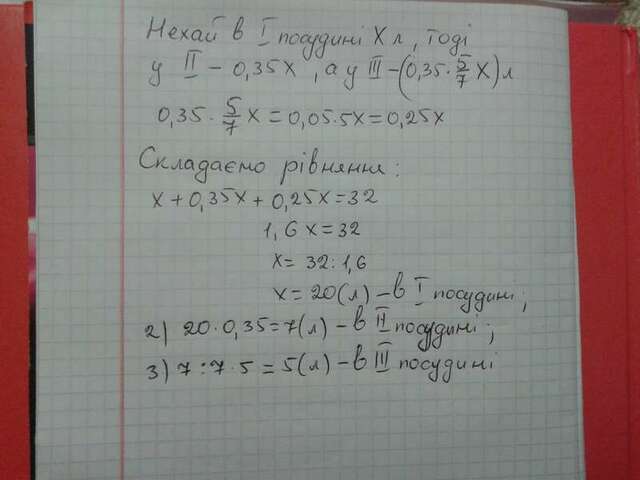 Нехай в I посудині X л, тоді
у II – 0,35x, а у III – (0,35 · 5/7 x) л
0,35 · 5/7 x = 0,05·5x = 0,25x
Складаємо рівняння:
x + 0,35x + 0,25x = 32
1,6x = 32
x = 32 : 1,6
x = 20(л) – в I посудині;
2) 20 · 0,35 = 7(л) – в II посудині;
3) 7 : 7 · 5 = 5(л) – в III посудині